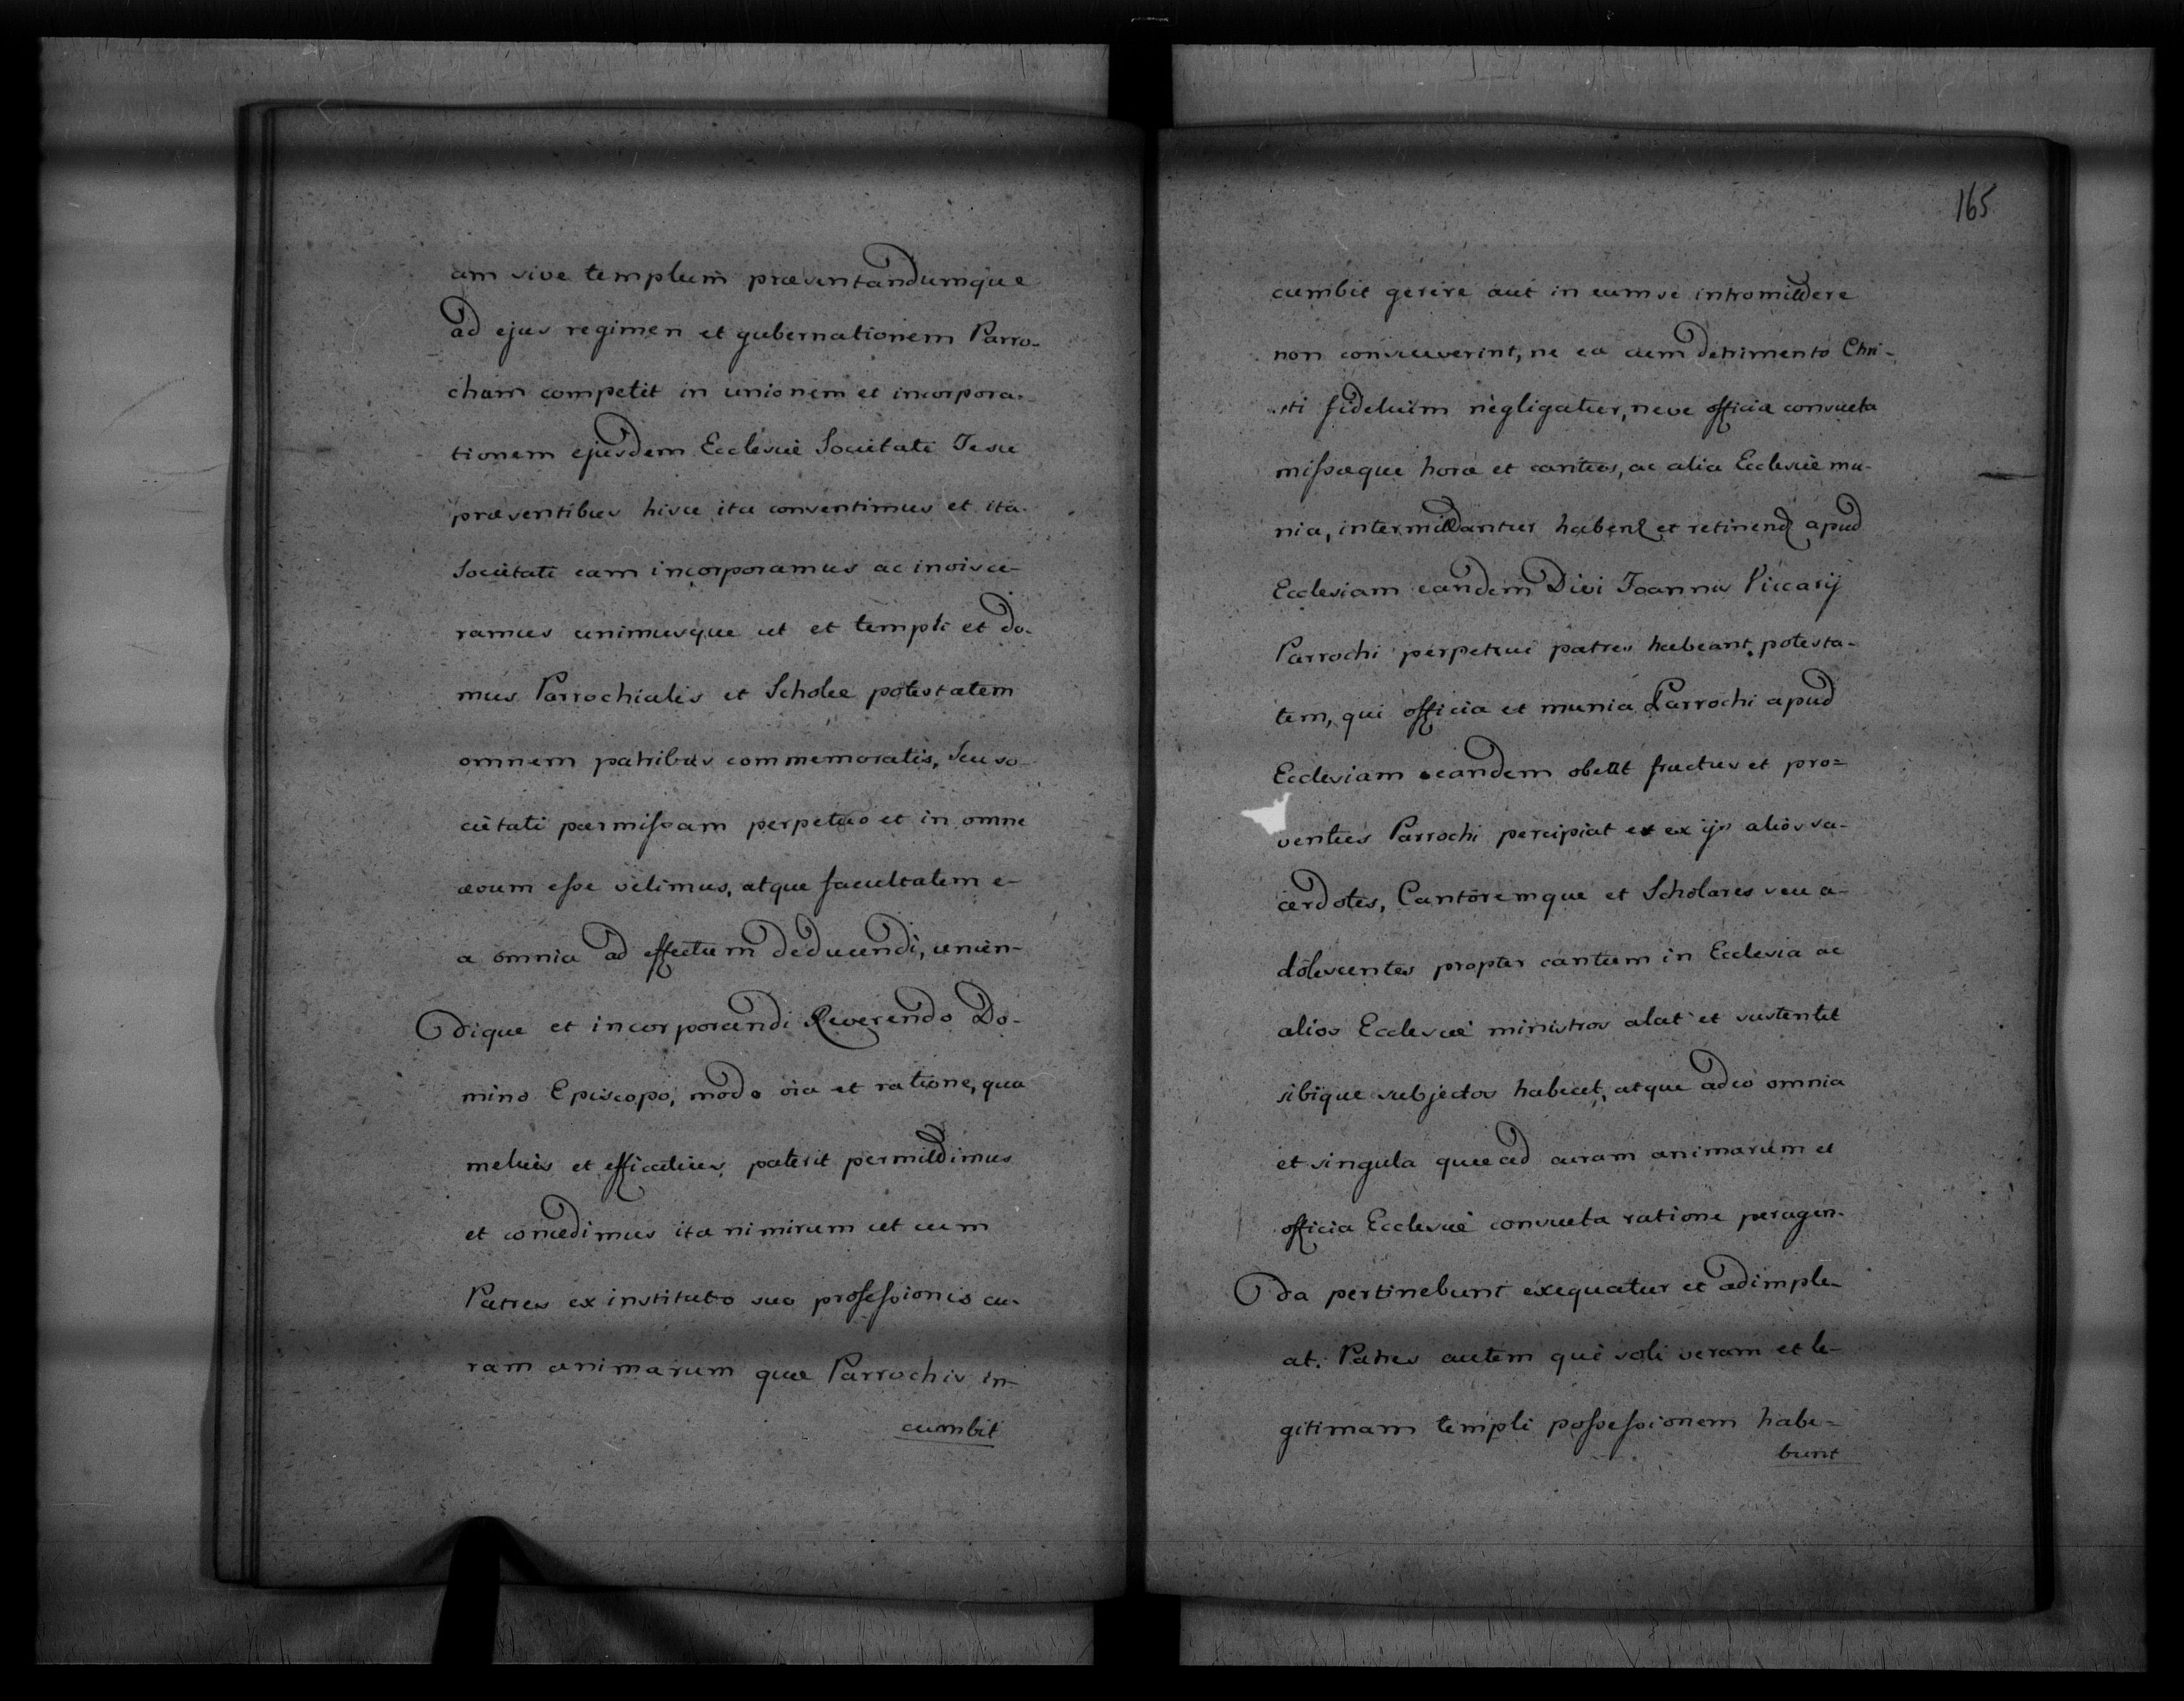 am sive templum præsentandumque
ad ejus regimen et gubernationem Parro-
cham competit in unionem et incorpora-
tionem ejusdem Ecclesiæ Societati Jesu
præsentibus hisce ita consentimus et ita
Societati eam incorporamus ac invisce-
ramus unimusque ut et templi et do-
mus Parrochialis et Scholæ potestatem
omnem patribus commemoratis, seu so-
cietati permissam perpetuo et in omne
ævum esse velimus, atque facultatem e-
a omnia ad effectum deducendi, unien-
dique et incorporandi Reverendo Do-
mino Episcopo, modo via et ratione, qua
melius et efficatius poterit permittimus
et concedimus ita nimirum ut cum
Patres ex instituto suo professionis cu-
ram animarum quæ Parrochis in-
cumbit
165
cumbit gerere aut in eum se intromittere
non consueverint, ne ea cum detrimento Chri-
sti fidelium negligatur, neve officia consueta
missæque horæ et cantus, ac alia Ecclesiæ mu-
nia, intermittantur habend et retinend apud
Ecclesiam eandem Divi Joannis Viccarij
Parrochi perpetui patres habeant potesta-
tem, qui officia et munia Parrochi apud
Ecclesiam eandem obeat fructus et pro-
ventus Parrochi percipiat et ex ijs alios sa-
cerdotes, Cantoremque et Scholares seu a-
dolescentes propter cantum in Ecclesia ac
alios Ecclesiæ ministros alat et sustentet
sibique subjectos habeat, atque adeo omnia
et singula quæ ad curam animarum et
officia Ecclesiæ consueta ratione peragen-
da pertinebunt exequatur et adimple-
at. Patres autem qui soli veram et le-
gitimam templi possessionem habe-
bunt